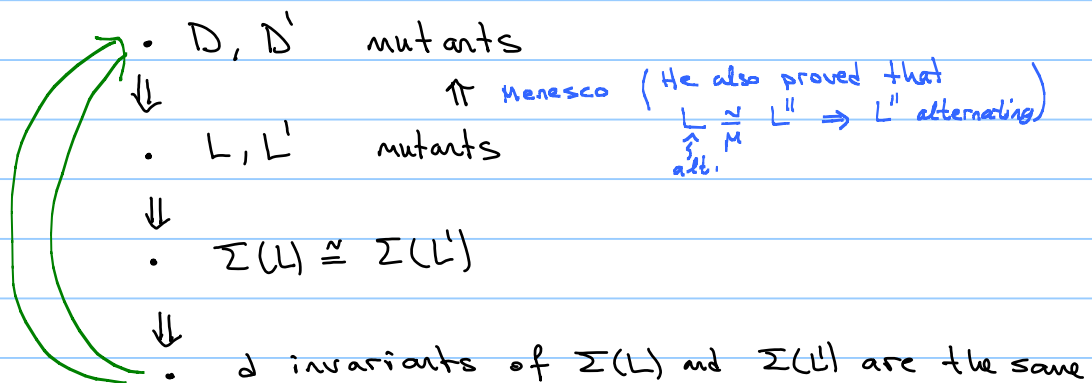 • D, D' mutants
⇓
⇑ Menesco (He also proved that
L ≅ L'' ⇒ L'' alternating)
M
alt.
• L, L' mutants
⇓
• Σ(L) ≅ Σ(L')
⇓
• d invariants of Σ(L) and Σ(L') are the same